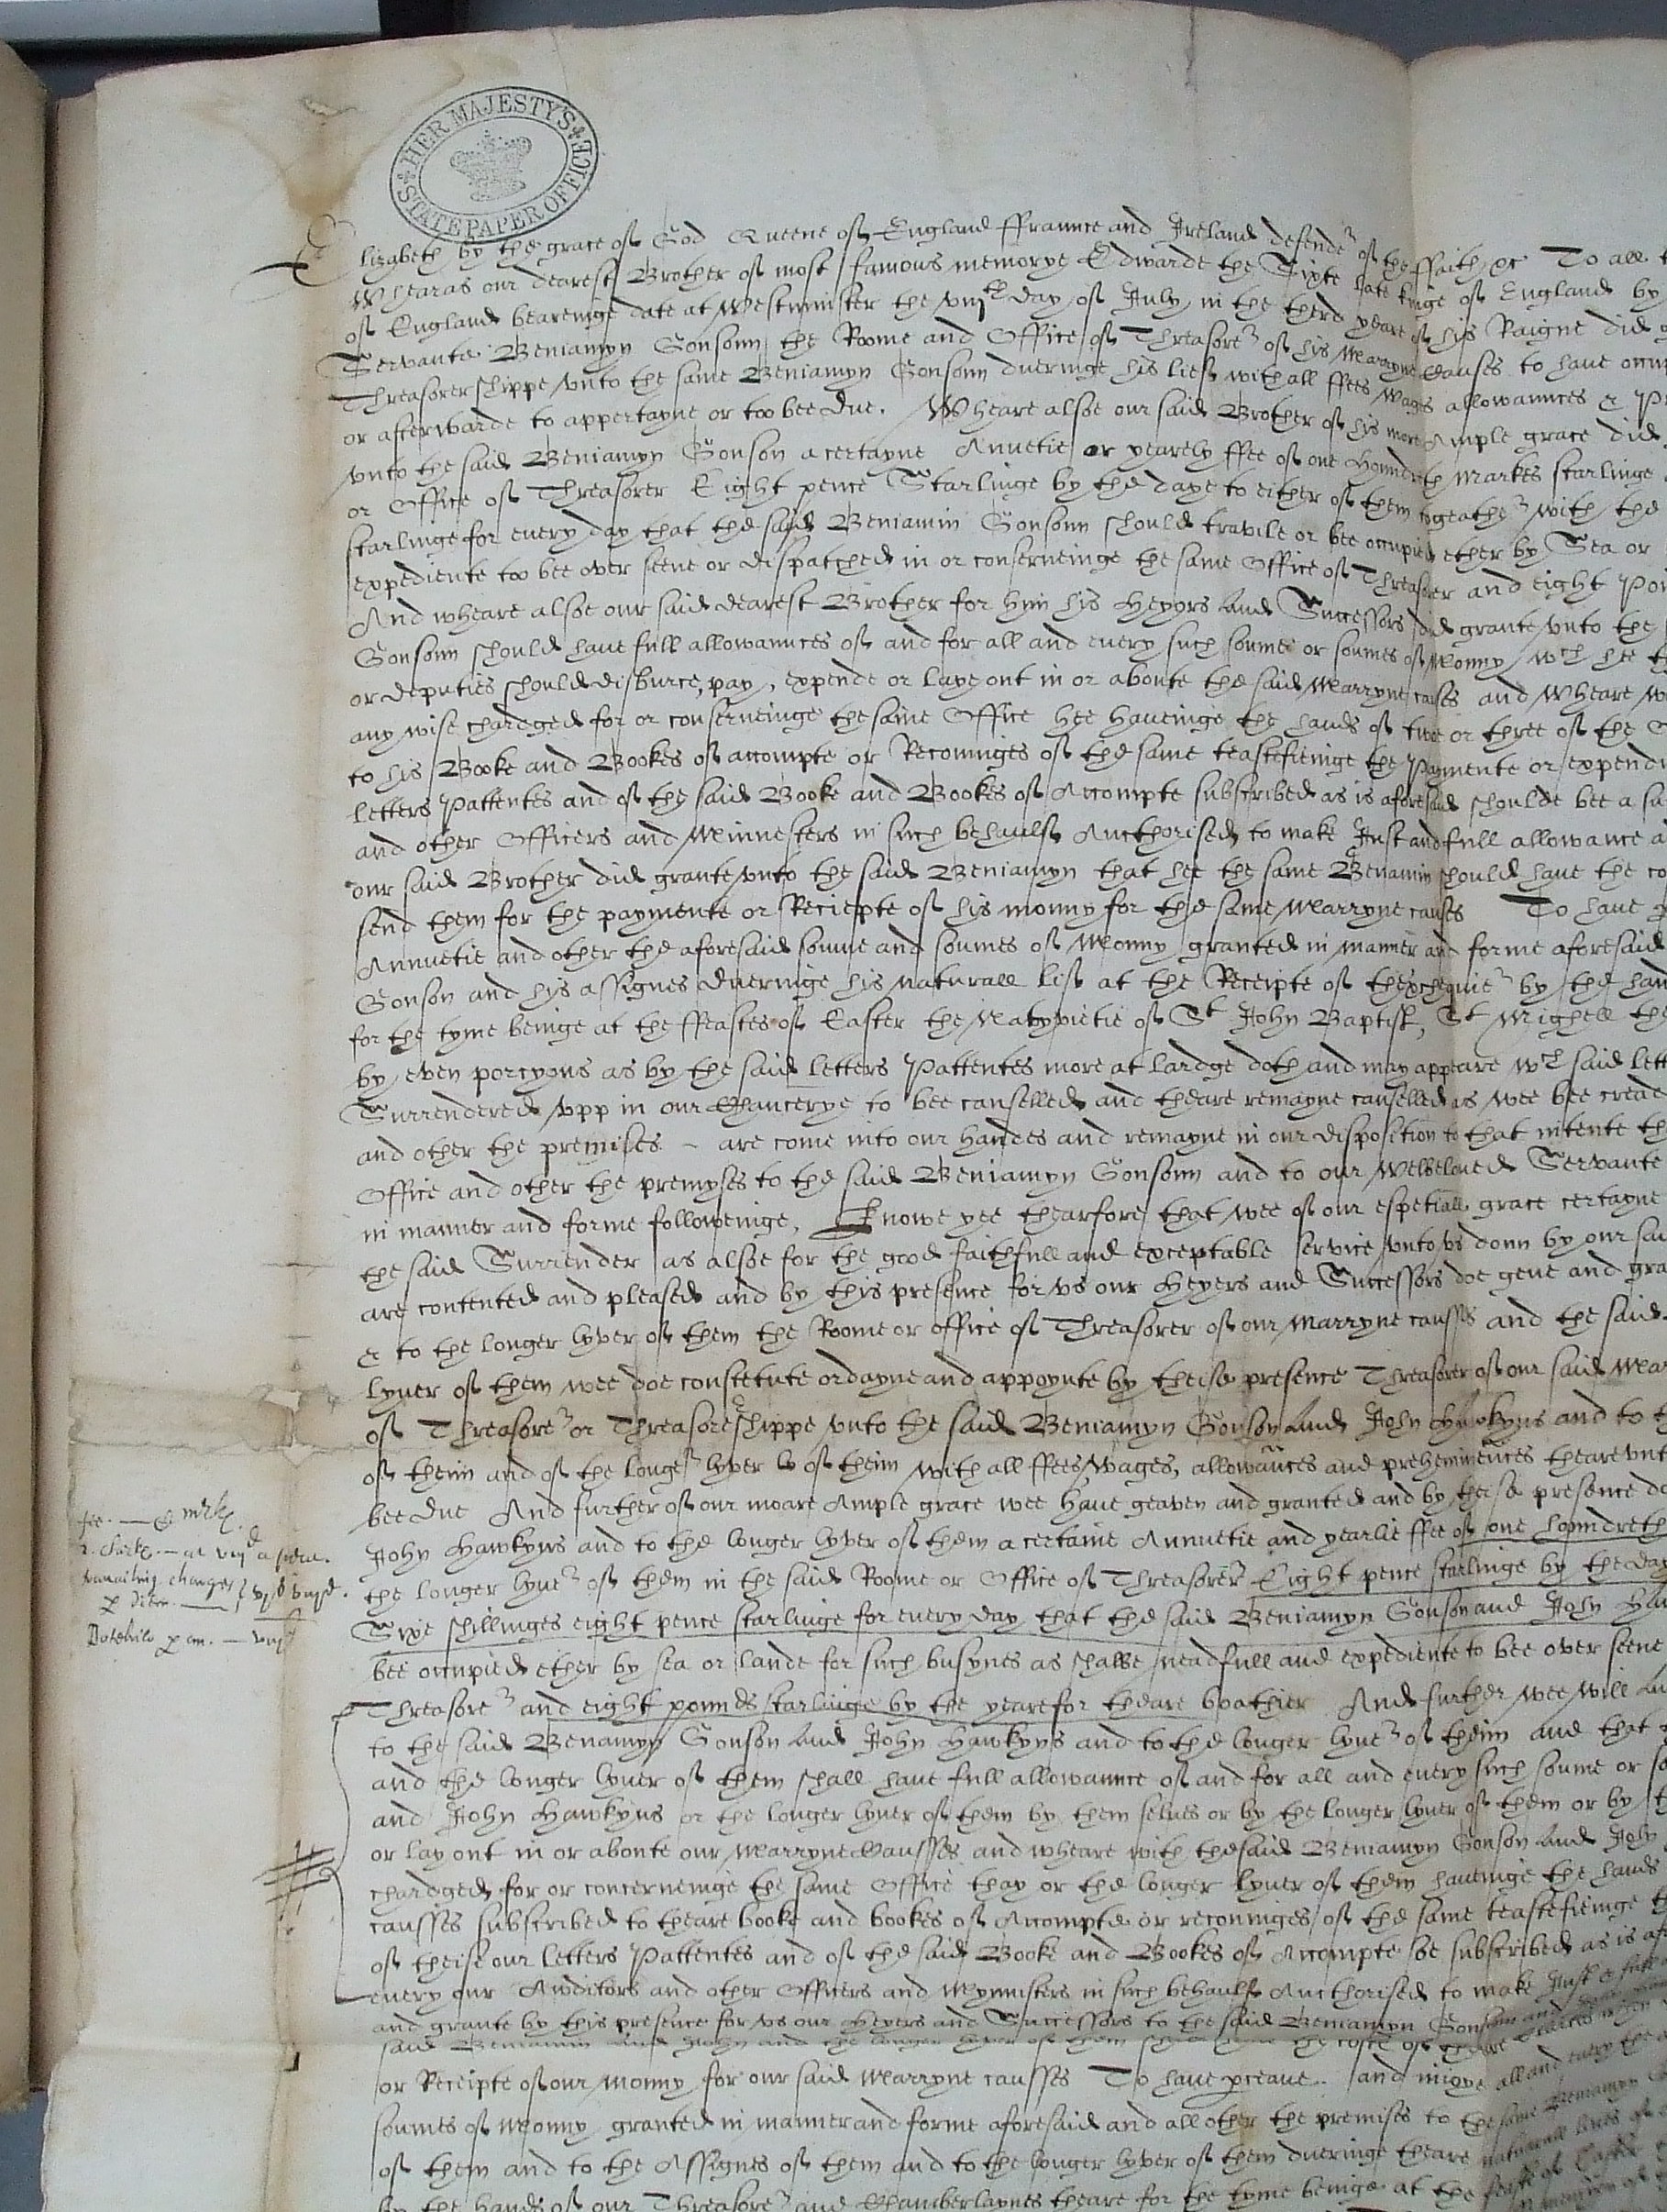 HER MAJESTY'S STATE PAPER OFFICE
Elizabeth by the grace of God Queene of England ffraunce and Ireland defender of the ffaith &c To all
Whearas our dearest Brother of most famous memorye Edwarde the Sixte late kinge of England by
of England beareinge date at Westminster the viijth day of July in the therd yeare of his Raigne did
Servante Beniamyn Gonsonn the Roome and Office of Threasorer of his Marryne Causes to haue
Threasorershippe vnto the same Beniamyn Gonsonn dueringe his lief with all ffees wages allowaunces &
or afterwarde to appertayne or too bee due. Wheare alsoe our said Brother of his more Ample grace did
vnto the said Beniamyn Gonson a certayne Annuetie or yearely ffee of one Houndreth Markes starlinge
or Office of Threasorer Eight pence Starlinge by the daye to either of them togeather with the
starlinge for euery day that the said Beniamin Gonsonn should travile or bee occupied ether by Sea or
expediente too bee over seene or dispatched in or conserneinge the same Office of Threasorer and eight
And wheare alsoe our said dearest Brother for hym his Heyers and Successors did grante vnto the
Gonsonn should haue full allowaunces of and for all and euery such soume or soumes of Monny wch hee
or deputies should disburce, pay, expende or laye out in or aboute the said Marryne causes and Wheare
any wise chardged for or conserneinge the same Office hee haueinge the hands of twoe or three of the
to his Booke and Bookes of accompte or Reconinges of the same teastefieinge the Paymente or
letters Pattentes and of the said Booke and Bookes of Accompte subscribed as is aforesaid shoulde bee a
and other Officers and Minnesters in such behaulf Aucthorised to make Just and full allowance
our said Brother did grante vnto the said Beniamyn that hee the same Beniamin should haue the
send them for the paymente or Reciepte of his monny for the same Marryne causes To haue
Annuetie and other the aforesaid soume and soumes of Monny granted in manner and forme aforesaid
Gonson and his assignes dueringe his naturall lief at the Receipte of thexchequier by the
for the tyme beinge at the ffeastes of Easter the Natyvietie of St John Baptist, St Mighell the
by even porcyons as by the said letters Pattentes more at lardge doth and may appeare wch said
Surrendered vpp in our Chancerye to bee canselled and theare remayne canselled as wee bee
and other the premises – are come into our handes and remayne in our disposition to that intente
Office and other the premyses to the said Beniamyn Gonsonn and to our Welbeloued Servante
in manner and forme followeinge, Knowe yee thearfore that wee of our espetiall grace certayne
the said Surrender as alsoe for the good faithfull and exceptable service vnto vs donn by our
are contented and pleased and by this presence for vs our Heyers and Successors doe geue and
& to the longer lyver of them the Roome or office of Threasorer of our Marryne causses and the said
lyuer of them wee doe constetute ordayne and appoynte by theise presence Threasorer of our said
of Threasorer or Threasorershippe vnto the said Beniamyn Gonson and John Hawkyns and to
of theim and of the longer lyver of theim with all ffees, wages, allowaunces and prehemmences
bee due And further of our moare Ample grace wee Haue geaven and granted and by theise presence
John Hawkyns and to the longer lyver of them a certaine Annuetie and yearlie ffee of one houndreth
the longer lyuer of them in the said Roome or Office of Threasorer Eight pence starlinge by the day
Sixe shillinges eight pence starlinge for euery day that the said Beniamyn Gonson and John
bee occupied ether by sea or lande for such busynes as shalbe neadfull and expediente to bee over seene
Threasorer and eight pounds starlinge by the yeare for theare boathier And further wee will
to the said Benamyn Gonson and John Hawkyns and to the longer lyuer of theim and that
and the longer lyuer of them shall haue full allowaunce of and for all and euery such soume or
and John Hawkyns or the longer lyuer of them by them selues or by the longer lyuer of them or by
or lay out in or aboute our Marryne Causses and wheare with the said Beniamyn Gonson and John
chardged for or concerneinge the same Office thay or the longer lyuer of them haueinge the hands
causses subscribed to theare booke and bookes of Accompte or reconinges of the same teastefieinge
of theise our letters Pattentes and of the said Booke and Bookes of Accompte soe subscribed as is
euery our Auditors and other Officers and Mynnisters in such behaulf Aucthorised to make Just &
and grante by this presence for vs our Heyers and Successors to the said Beniamyn Gonson and
said Beniamin and John and the longer lyver of them the costs of theare
or Receipte of our Monny for our said Marryne causses To haue and inioye all and euery the
soumes of Monny granted in manner and forme aforesaid and all other the premises to the same Beniamyn
of them and to the Assignes of them and to the longer lyver of them dueringe theare naturall liues of
by the hands of our Threasorer and Chamberlaynes theare for the tyme beinge at the feast of Easter
fee. — C mrkes.
2. clarkes. — at viijd a peece.
travailing charges
p diem. — vjs viijd.
Botehire p an. — viijl